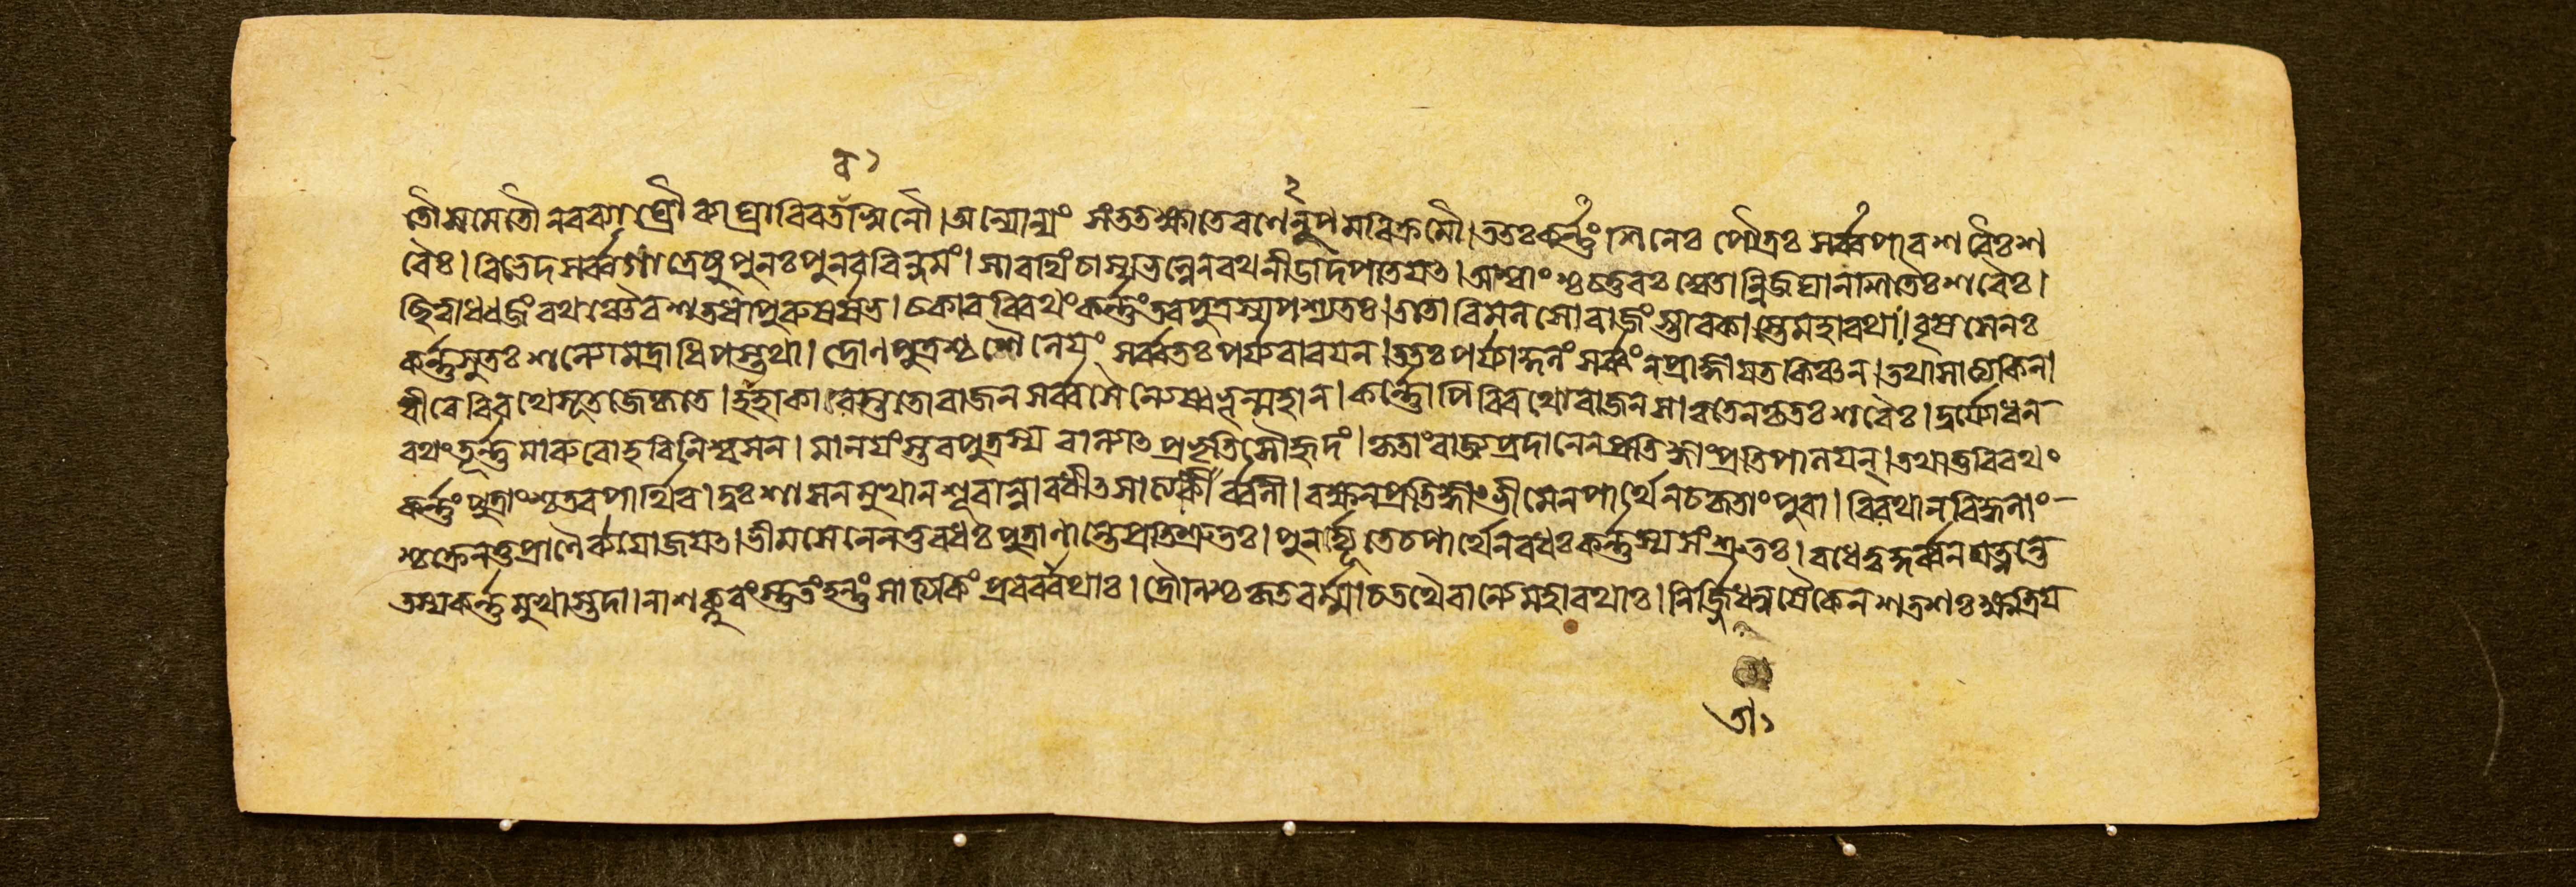 র১
২
তৌ সমেতৌ নরব্যাঘ্রৌ ব্যাঘ্রাবিবতরস্বিনৌ। অন্যোন্যং সংততক্ষাতে রণেনুপমবিক্রমৌ। ততঃ কর্ন্নং শিনেঃ পৌত্রঃ সর্ব্বপারশবৈঃ শ
রৈঃ। বিভেদ সর্ব্বগাত্রেষু পুনঃ পুনররিন্দমং। সারথিং চাস্য ভল্লেন রথনীডাদপাতয়ৎ। অশ্বাংশ্চ চতুরঃ শ্বেতান্নিজঘান শিতৈঃ শরৈঃ।
ছিত্বা ধ্বজং রথঞ্চৈব শতধা পুরুষর্ষভ। চকার বিরথং কর্ন্নং তব পুত্রস্য পশ্যতঃ। ততো বিমনসো রাজংস্তাবকাস্তে মহারথাঃ। বৃষসেনঃ
কর্ন্নসুতঃ শল্যো মদ্রাধিপস্তথা। দ্রোণপুত্রশ্চ শৈনেয়ং সর্ব্বতঃ পর্যবারয়ন। ততঃ পর্যাকুলং সর্ব্বং ন প্রাজ্ঞায়ত কিঞ্চন। তথা সাত্যকিনা
বীরে বিরথে সূতজে কৃতে। হাহাকারস্ততো রাজন সর্ব্বসৈন্যেষ্বভূন্মহান। কর্ন্নোপি বিরথো রাজন সাত্বতেন কৃতঃ শরৈঃ। দুর্যোধন
রথং তূর্ন্নমারুরোহ বিনিশ্বসন। মানয়ংস্তব পুত্রস্য বাল্যাৎ প্রভৃতি সৌহৃদং। কৃতাং রাজ্যপ্রদানেন প্রতিজ্ঞাং প্রতিপালয়ন্। তথা তু বিরথং
কর্ন্নং পুত্রাংশ্চ তব পার্থিব। দুঃশাসনমুখান শূরান্নাবধীৎ সাত্যকির্ব্বলী। রক্ষন প্রতিজ্ঞাং ভীমেন পার্থেন চ কৃতাং পুরা। বিরথান বিহ্বলাং
শ্চক্রে ন তু প্রাণৈর্ব্যযোজয়ৎ। ভীমসেনেন তু বধঃ পুত্রাণান্তে প্রতিশ্রুতঃ। পুনর্দ্যূতে চ পার্থেন বধঃ কর্ন্নস্য সংশ্রুতঃ। বধে ত্বকুর্ব্বন যত্নন্তে
তস্য কর্ন্নমুখাস্তদা। নাশক্নুবংস্তু তং হন্তুং সাত্যকিং প্রবরা রথাঃ। দ্রৌণিশ্চ কৃতবর্ম্মা চ তথৈবান্যে মহারথাঃ। নির্জ্জিতা ধনুষৈকেন শতশঃ ক্ষত্রিয়
তা১